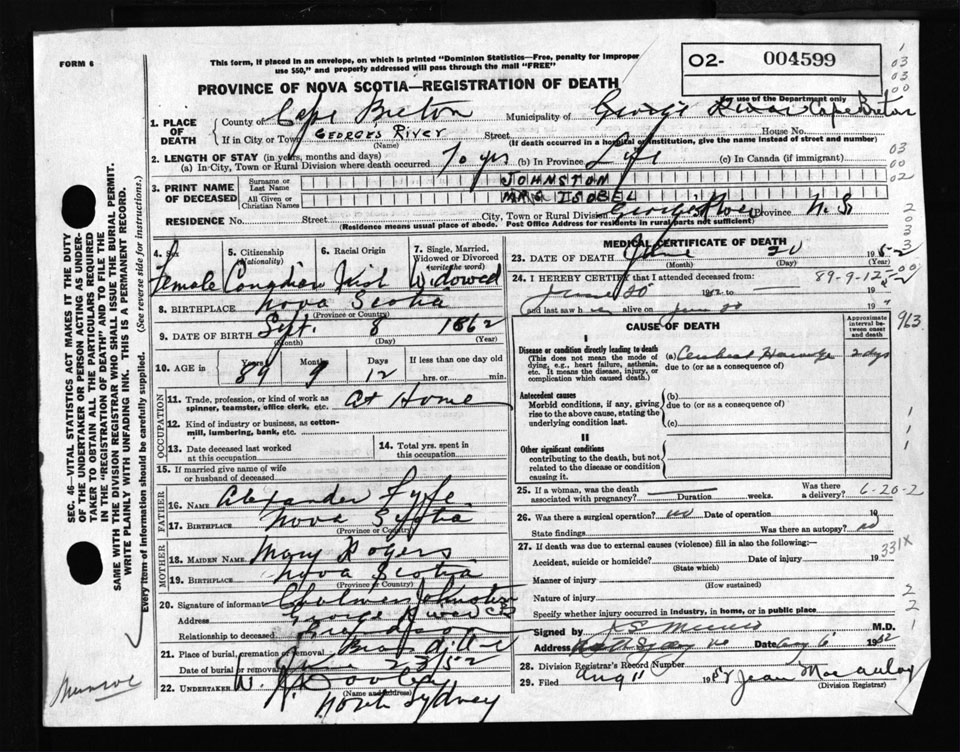 FORM 6
This form, if placed in an envelope, on which is printed "Dominion Statistics—Free, penalty for improper
use $50," and properly addressed will pass through the mail "FREE"
PROVINCE OF NOVA SCOTIA—REGISTRATION OF DEATH
O2- 004599
For use of the Department only
1. PLACE OF DEATH
County of Cape Breton Municipality of Georges River Cape Breton
If in City or Town GEORGES RIVER Street House No.
(Name) (If death occurred in a hospital or institution, give the name instead of street and number)
2. LENGTH OF STAY (in years, months and days)
(a) In City, Town or Rural Division where death occurred 70 yrs (b) In Province Life (c) In Canada (if immigrant)
3. PRINT NAME OF DECEASED
Surname or Last Name JOHNSTON
All Given or Christian Names MRS ISOBEL
RESIDENCE No. Street City, Town or Rural Division George's River Province N.S.
(Residence means usual place of abode. Post Office Address for residents in rural parts not sufficient)
4. Sex Female
5. Citizenship (Nationality) Canadian
6. Racial Origin Irish
7. Single, Married, Widowed or Divorced (write the word) Widowed
8. BIRTHPLACE Nova Scotia
(Province or Country)
9. DATE OF BIRTH Sept. 8 1862
(Month) (Day) (Year)
10. AGE in Years 89 Months 9 Days 12 If less than one day old
hrs. or min.
OCCUPATION
11. Trade, profession, or kind of work as
spinner, teamster, office clerk, etc. At Home
12. Kind of industry or business, as cotton-
mill, lumbering, bank, etc.
13. Date deceased last worked
at this occupation
14. Total yrs. spent in
this occupation
15. If married give name of wife
or husband of deceased
FATHER
16. NAME Alexander Fyfe
17. BIRTHPLACE Nova Scotia
(Province or Country)
MOTHER
18. MAIDEN NAME Mary Rogers
19. BIRTHPLACE Nova Scotia
(Province or Country)
20. Signature of informant Johnston
Address Georges River CB
Relationship to deceased
21. Place of burial, cremation or removal
Date of burial or removal June 23/52
22. UNDERTAKER W. Dooley
(Name and address)
North Sydney
MEDICAL CERTIFICATE OF DEATH
23. DATE OF DEATH June 20 1952
(Month) (Day) (Year)
24. I HEREBY CERTIFY that I attended deceased from: 89-9-12
June 20 1952 to
and last saw h alive on June 20 19
CAUSE OF DEATH
Approximate interval between onset and death
963
I
Disease or condition directly leading to death
(This does not mean the mode of
dying, e.g., heart failure, asthenia,
etc. It means the disease, injury, or
complication which caused death.)
(a) Cerebral Hemorrhage 2 dys
due to (or as a consequence of)
Antecedent causes
Morbid conditions, if any, giving
rise to the above cause, stating the
underlying condition last.
(b)
due to (or as a consequence of)
(c)
II
Other significant conditions
contributing to the death, but not
related to the disease or condition
causing it.
25. If a woman, was the death
associated with pregnancy? Duration weeks. Was there
a delivery? 6-20-2
26. Was there a surgical operation? no Date of operation 19
State findings Was there an autopsy? no
27. If death was due to external causes (violence) fill in also the following:
Accident, suicide or homicide? Date of injury 19
(State which)
331X
Manner of injury
(How sustained)
Nature of injury
Specify whether injury occurred in industry, in home, or in public place
Signed by M.D.
Address Date Aug 6 1952
28. Division Registrar's Record Number
29. Filed Aug 11 195 Jean MacAulay
(Division Registrar)
SEC. 46—VITAL STATISTICS ACT MAKES IT THE DUTY
OF THE UNDERTAKER OR PERSON ACTING AS UNDER-
TAKER TO OBTAIN ALL THE PARTICULARS REQUIRED
IN THE "REGISTRATION OF DEATH" AND FILE THE
SAME WITH THE DIVISION REGISTRAR WHO SHALL ISSUE THE BURIAL PERMIT.
WRITE PLAINLY WITH UNFADING INK. THIS IS A PERMANENT RECORD.
Every item of information should be carefully supplied. (See reverse side for instructions.)
Munroe